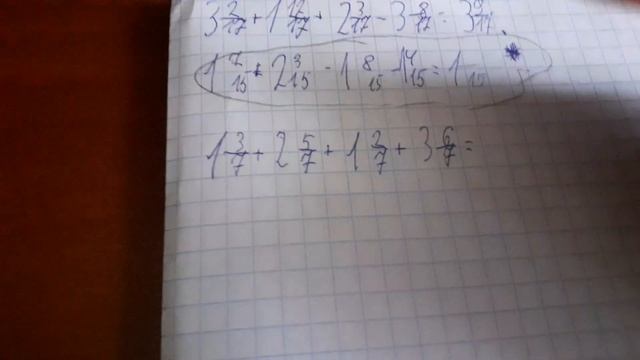 3 2/17 + 1 12/17 + 2 3/17 - 3 8/17 = 3 9/17.
1 7/15 + 2 3/15 - 1 8/15 - 1 4/15 = 1 /15 *
1 3/7 + 2 5/7 + 1 2/7 + 3 6/7 =